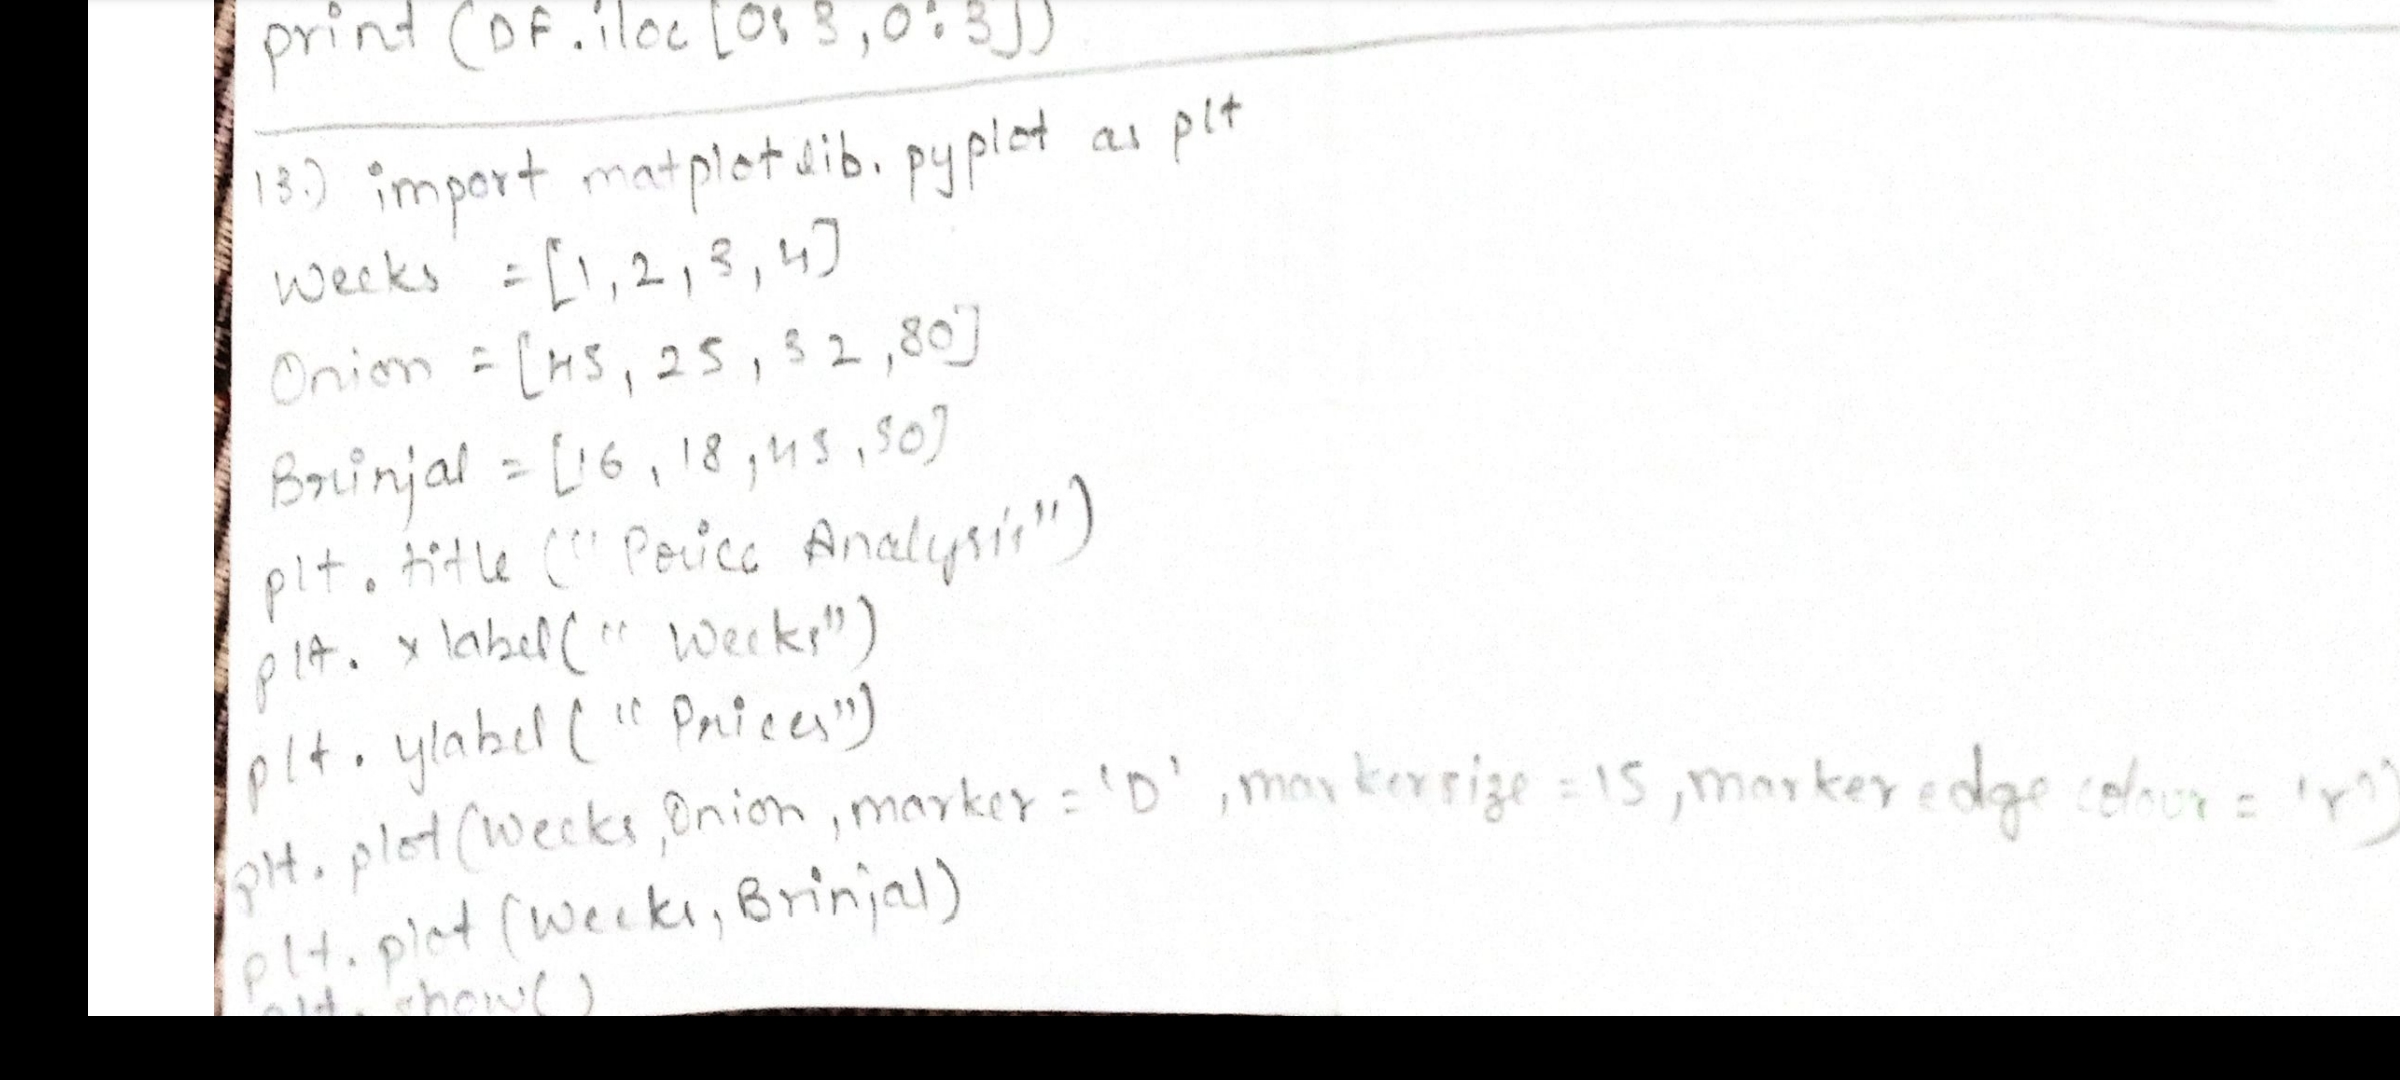 print (DF.iloc [0:3,0:3])
13.) import matplotlib.pyplot as plt
Weeks = [1,2,3,4]
Onion = [45,25,32,80]
Brinjal = [16,18,45,50]
plt.title ("Price Analysis")
plt.xlabel(" Weeks")
plt.ylabel (" Prices")
plt.plot(Weeks,Onion,marker='D',markersize=15,markeredgecolour='r')
plt.plot (Weeks,Brinjal)
plt.show()